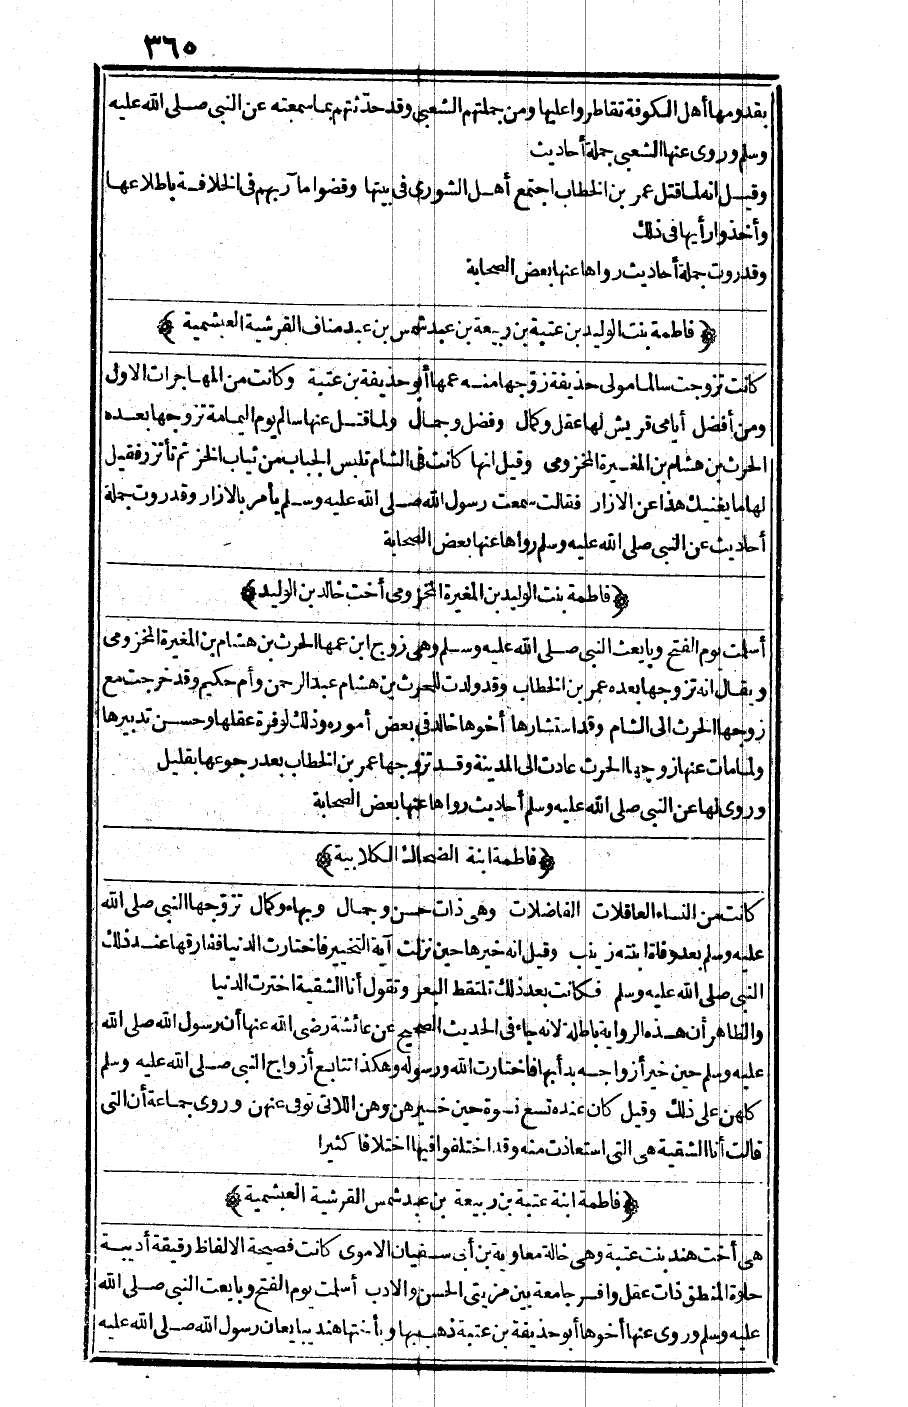 ٣٦٥
بقدومها أهل الكوفة تقاطروا عليها ومن جملتهم الشعبي وقد حدثتهم بما سمعته عن النبي صلى الله عليه
وسلم وروى عنها الشعبى جملة أحاديث
وقيل انه لما قتل عمر بن الخطاب اجتمع أهل الشورى فى بيتها وقضوا مآربهم فى الخلافة باطلاعها
وأخذوا رأيها فى ذلك
وقد روت جملة أحاديث رواها عنها بعض الصحابة
﴿ فاطمة بنت الوليد بن عتبة بن ربيعة بن عبد شمس بن عبد مناف القرشية العبشمية ﴾
كانت تزوجت سالما مولى حذيفة زوجها منه عمها أبو حذيفة بن عتبة وكانت من المهاجرات الاول
ومن أفضل أيامى قريش لها عقل وكمال وفضل وجمال ولما قتل عنها سالم يوم اليمامة تزوجها بعده
الحرث بن هشام بن المغيرة المخزومى وقيل انها كانت فى الشام تلبس الجباب من ثياب الخز ثم تأتزر فقيل
لها ما يغنيك هذا عن الازار فقالت سمعت رسول الله صلى الله عليه وسلم يأمر بالازار وقد روت جملة
أحاديث عن النبى صلى الله عليه وسلم رواها عنها بعض الصحابة
﴿ فاطمة بنت الوليد بن المغيرة المخزومى أخت خالد بن الوليد ﴾
أسلمت يوم الفتح وبايعت النبى صلى الله عليه وسلم وهى زوج ابن عمها الحرث بن هشام بن المغيرة المخزومى
ويقال انه تزوجها بعده عمر بن الخطاب وقد ولدت للحرث بن هشام عبد الرحمن وأم حكيم وقد خرجت مع
زوجها الحرث الى الشام وقد استشارها أخوها خالد فى بعض أموره وذلك لوفرة عقلها وحسن تدبيرها
ولما مات عنها زوجها الحرث عادت الى المدينة وقد تزوجها عمر بن الخطاب بعد رجوعها بقليل
وروى لها عن النبى صلى الله عليه وسلم أحاديث رواها عنها بعض الصحابة
﴿ فاطمة ابنة الضحاك الكلابية ﴾
كانت من النساء العاقلات الفاضلات وهى ذات حسن وجمال وبهاء وكمال تزوجها النبى صلى الله
عليه وسلم بعد وفاة ابنته زينب وقيل انه خيرها حين نزلت آية التخيير فاختارت الدنيا ففارقها عند ذلك
النبى صلى الله عليه وسلم فكانت بعد ذلك تلتقط البعر وتقول أنا الشقية اخترت الدنيا
والظاهر أن هذه الرواية باطلة لانه جاء فى الحديث الصحيح عن عائشة رضى الله عنها أن رسول الله صلى الله
عليه وسلم حين خير أزواجه بدأ بها فاختارت الله ورسوله وهكذا تتابع أزواج النبى صلى الله عليه وسلم
كلهن على ذلك وقيل كان عنده تسع نسوة حين خيرهن وهن اللاتى توفى عنهن وروى جماعة أن التى
قالت أنا الشقية هى التى استعاذت منه وقد اختلفوا فيها اختلافا كثيرا
﴿ فاطمة ابنة عتبة بن ربيعة بن عبد شمس القرشية العبشمية ﴾
هى أخت هند بنت عتبة وهى خالة معاوية بن أبى سفيان الاموى كانت فصيحة الالفاظ رقيقة أديبة
حلوة المنطق ذات عقل وافر جامعة بين مزيتى الحسن والادب أسلمت يوم الفتح وبايعت النبى صلى الله
عليه وسلم وروى عنها أخوها أبو حذيفة بن عتبة ذهب بها وبأختها هند يبايعان رسول الله صلى الله عليه